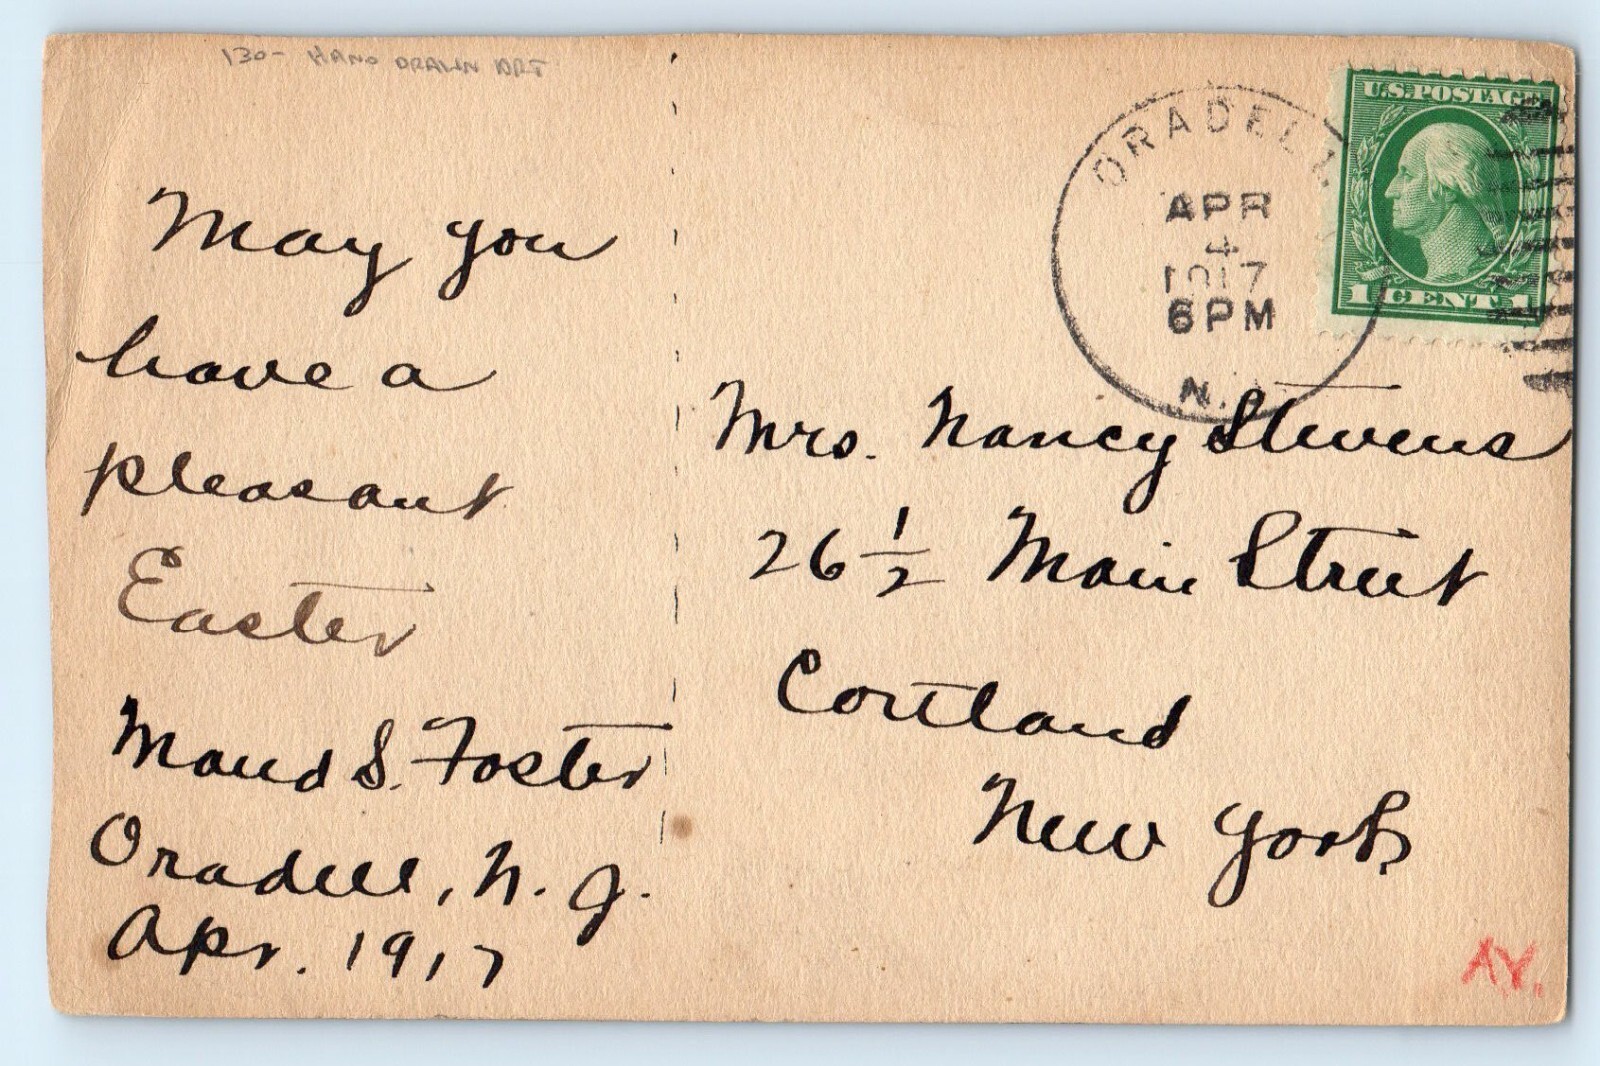 130- HAND DRAWN ART
May you
have a
pleasant
Easter
Maud S. Foster
Oradell, N. J.
Apr. 1917
ORADELL
APR
4
1917
6PM
N.
U.S. POSTAGE
1 CENT 1
Mrs. Nancy Stevens
26 1/2 Main Street
Cortland
New York
AY.